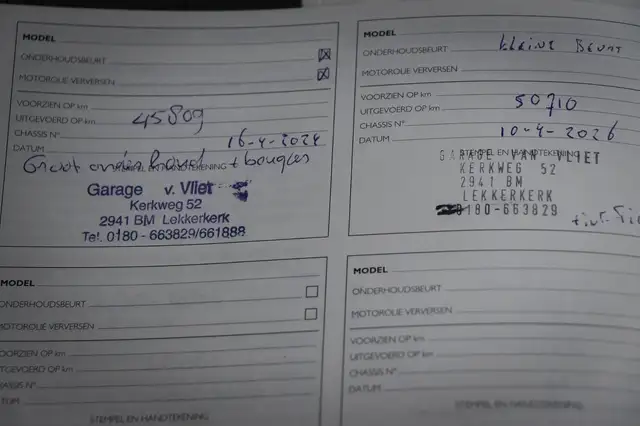 MODEL
ONDERHOUDSBEURT
MOTOROLIE VERVERSEN
VOORZIEN OP km
UITGEVOERD OP km 45809
CHASSIS N°
DATUM 16-4-2024
Groot onderhoud + bougies
STEMPEL EN HANDTEKENING
Garage v. Vliet
Kerkweg 52
2941 BM Lekkerkerk
Tel. 0180 - 663829/661888
MODEL
ONDERHOUDSBEURT kleine Beurt
MOTOROLIE VERVERSEN
VOORZIEN OP km
UITGEVOERD OP km 50710
CHASSIS N°
DATUM 10-4-2026
STEMPEL EN HANDTEKENING
GARAGE VAN VLIET
KERKWEG 52
2941 BM
LEKKERKERK
0180-663829
MODEL
ONDERHOUDSBEURT
MOTOROLIE VERVERSEN
VOORZIEN OP km
UITGEVOERD OP km
CHASSIS N°
DATUM
STEMPEL EN HANDTEKENING
MODEL
ONDERHOUDSBEURT
MOTOROLIE VERVERSEN
VOORZIEN OP km
UITGEVOERD OP km
CHASSIS N°
DATUM
STEMPEL EN HANDTEKENING